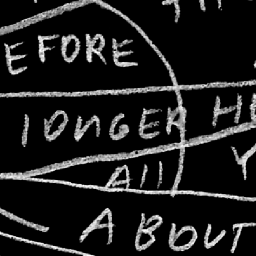 EFORE
lONGER H
All
ABOUT